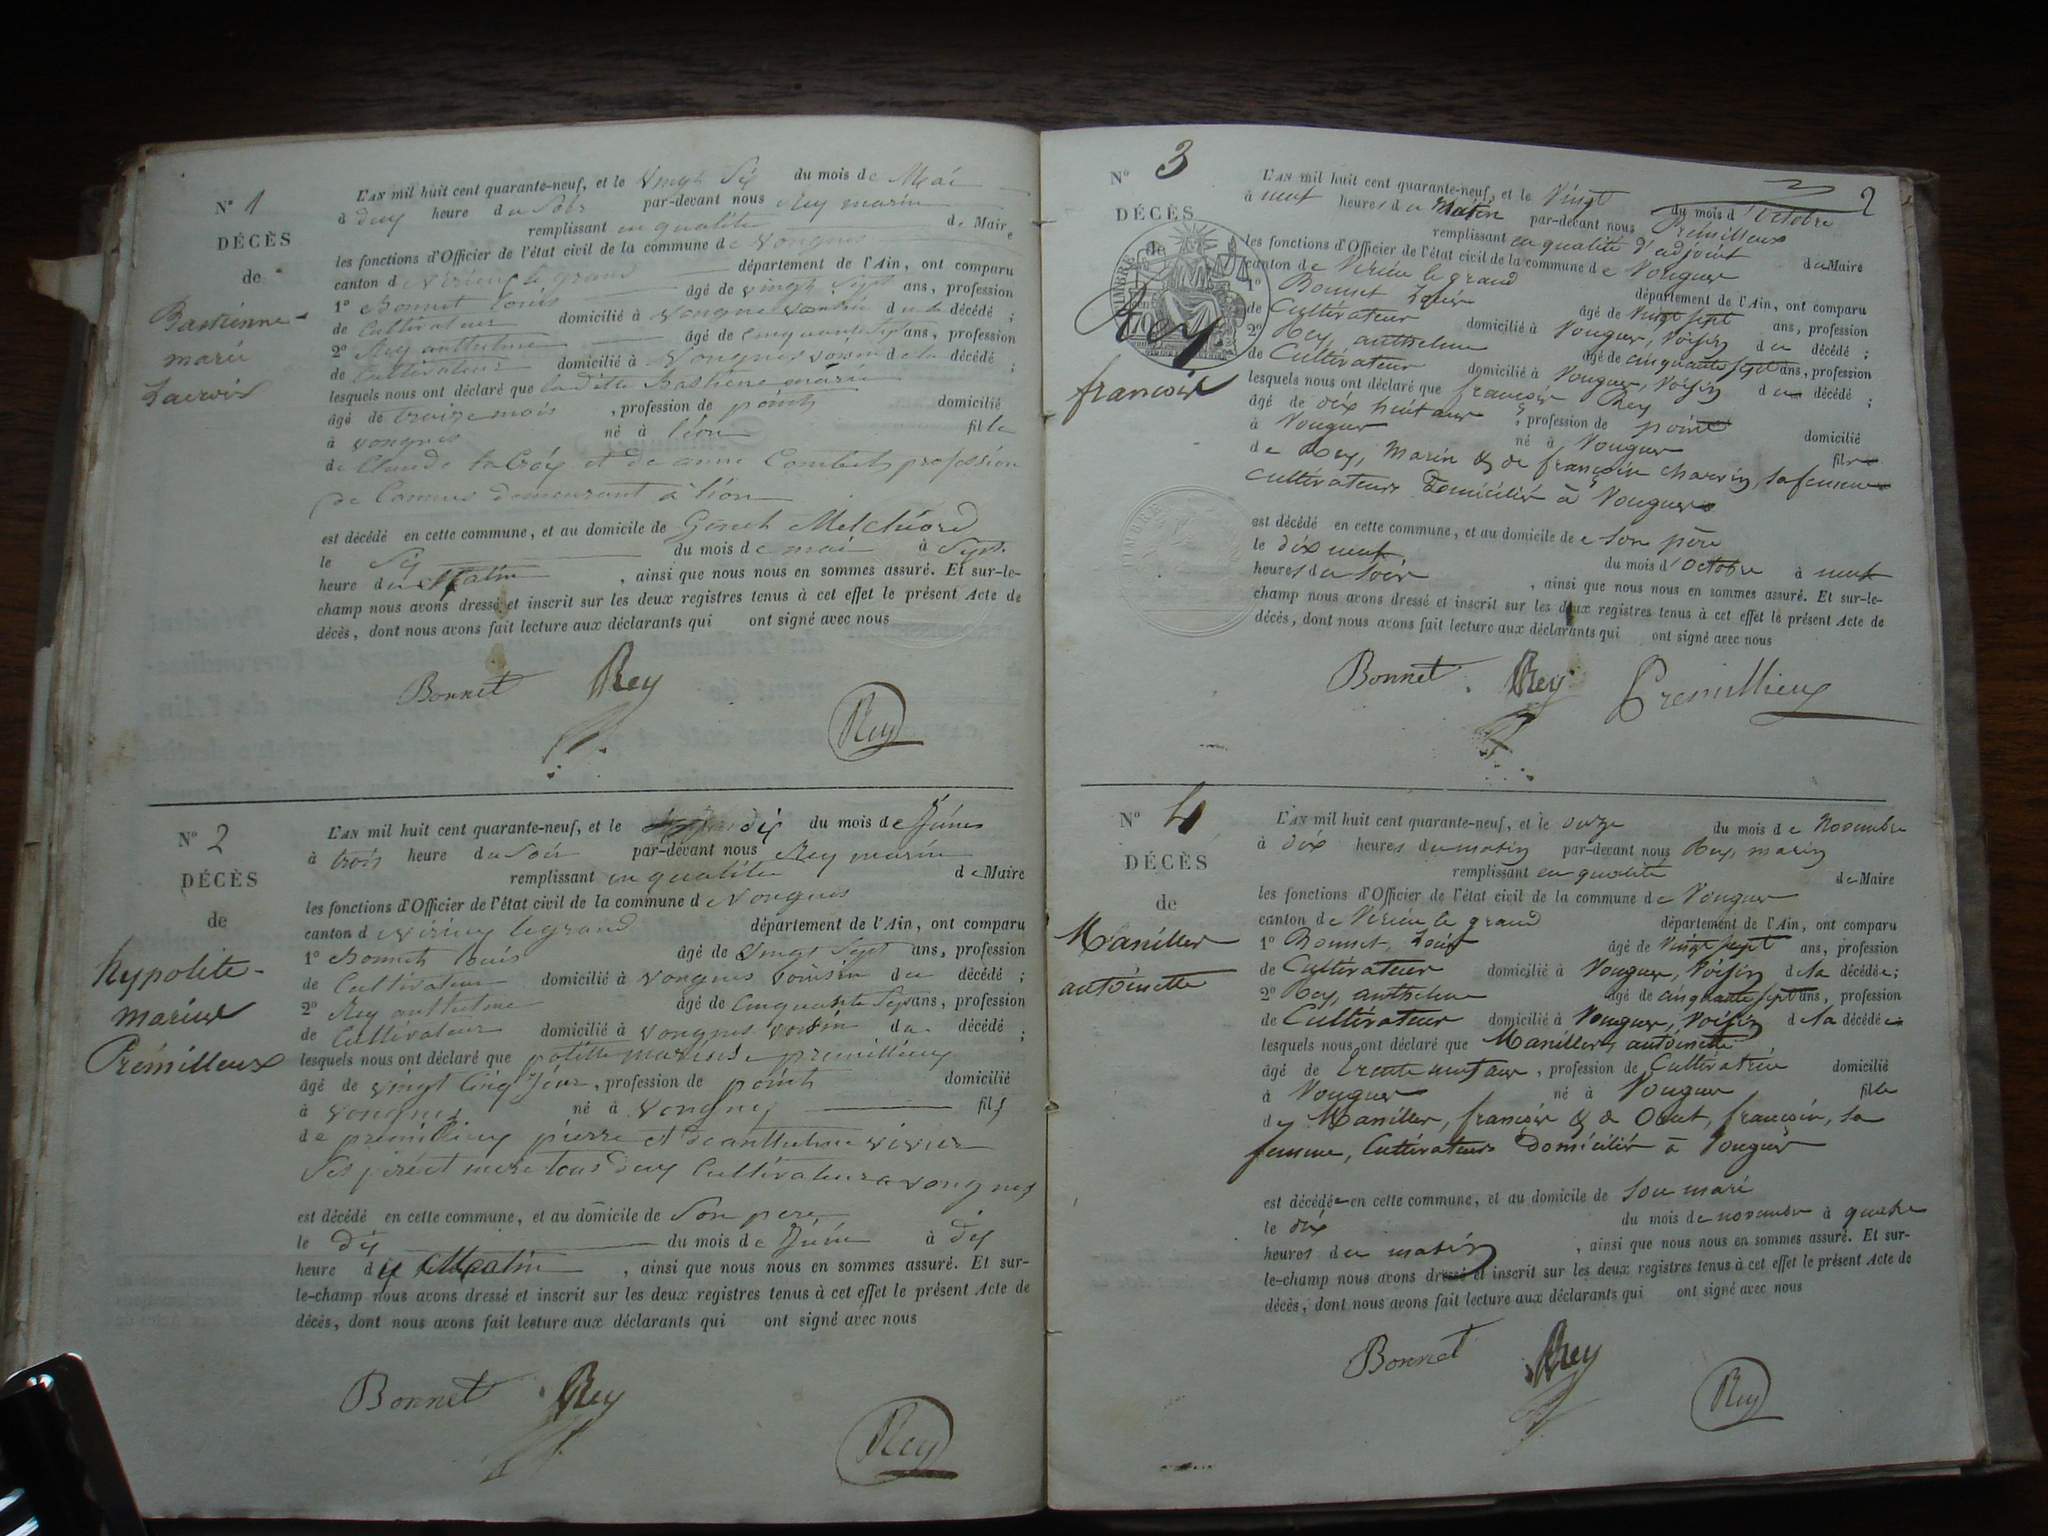 N° 1
DÉCÈS
de
Bastienne
marie
Lacroix
L'AN mil huit cent quarante-neuf, et le vingt Six du mois de Mai
à deux heure du Soir par-devant nous Rey marin
remplissant en qualite de Maire
les fonctions d'Officier de l'état civil de la commune de Vongnes
canton d virieu le grand département de l'Ain, ont comparu
1° Bonnet louis âgé de vingt Sept ans, profession
de Cultivateur domicilié à vongnes voisin de la décédé ;
2° Rey anthelme âgé de Cinquante Sept ans, profession
de Cultivateur domicilié à Vongnes voisin de la décédé ;
lesquels nous ont déclaré que ladite Bastiene marie
âgé de treize mois , profession de point domicilié
à vongnes né à léon fille
de Claude la Croix et de anne Combet profession
de demeurant à léon
est décédé en cette commune, et au domicile de Ginet Melchiord
le Six du mois de mai à Sept
heure du Matin , ainsi que nous nous en sommes assuré. Et sur-le-
champ nous avons dressé et inscrit sur les deux registres tenus à cet effet le présent Acte de
décès, dont nous avons fait lecture aux déclarants qui ont signé avec nous
Bonnet Rey
Rey
N° 2
DÉCÈS
de
hypolite
mariux
Prémilleux
L'AN mil huit cent quarante-neuf, et le dix du mois de Juin
à trois heure du Soir par-devant nous Rey marin
remplissant en qualite de Maire
les fonctions d'Officier de l'état civil de la commune d Vongnes
canton d virieu le grand département de l'Ain, ont comparu
1° Bonnet louis âgé de Vingt Sept ans, profession
de Cultivateur domicilié à vongnes voisin du décédé ;
2° Rey anthelme âgé de Cinquante Sept ans, profession
de Cultivateur domicilié à vongnes voisin du décédé ;
lesquels nous ont déclaré que premillieux
âgé de vingt Cinq Jour, profession de point domicilié
à vongnes né à vongnes fils
de premilieux pierre et de anthelme vivier
Ses père et mere tous deux Cultivateur a vongnes
est décédé en cette commune, et au domicile de Son pere
le dix du mois de Juin à dix
heure du Matin , ainsi que nous nous en sommes assuré. Et sur-
le-champ nous avons dressé et inscrit sur les deux registres tenus à cet effet le présent Acte de
décès, dont nous avons fait lecture aux déclarants qui ont signé avec nous
Bonnet Rey
Rey
2
N° 3
DÉCÈS
de
Rey
francois
L'AN mil huit cent quarante-neuf, et le Vingt du mois d'Octobre
à neuf heures du Matin par-devant nous Prémilleux
remplissant en qualité d'adjoint de Maire
les fonctions d'Officier de l'état civil de la commune de Vongnes
canton de Virieu le grand département de l'Ain, ont comparu
1° Bonnet Louis âgé de vingt sept ans, profession
de Cultivateur domicilié à Vongnes, Voisin du décédé ;
2° Rey, anthelme âgé de cinquante sept ans, profession
de Cultivateur domicilié à Vongnes, Voisin du décédé ;
lesquels nous ont déclaré que françois Rey
âgé de dix huit ans , profession de point domicilié
à Vongnes né à Vongnes fils
de Rey, Marin & de françoise Charvin, sa femme
cultivateurs Domiciliés à Vongnes
est décédé en cette commune, et au domicile de son père
le dix neuf du mois d'Octobre à neuf
heures du Soir , ainsi que nous nous en sommes assuré. Et sur-le-
champ nous avons dressé et inscrit sur les deux registres tenus à cet effet le présent Acte de
décès, dont nous avons fait lecture aux déclarants qui ont signé avec nous
Bonnet Rey Premillieux
N° 4
DÉCÈS
de
Maniller
antoinette
L'AN mil huit cent quarante-neuf, et le onze du mois de Novembre
à dix heures du matin par-devant nous Rey, marin
remplissant en qualité de Maire
les fonctions d'Officier de l'état civil de la commune de Vongnes
canton de Virieu le grand département de l'Ain, ont comparu
1° Bonnet, Louis âgé de vingt sept ans, profession
de Cultivateur domicilié à Vongnes, Voisin de la décédée ;
2° Rey, anthelme âgé de cinquante sept ans, profession
de Cultivateur domicilié à Vongnes, Voisin de la décédée
lesquels nous ont déclaré que Maniller, antoinette
âgé de trente neuf ans , profession de Cultivatrice domicilié
à Vongnes né à Vongnes fille
de Maniller, françois & de françoise, sa
femme, Cultivateurs Domiciliés à Vongnes
est décédée en cette commune, et au domicile de son mari
le dix du mois de novembre à quatre
heures du matin , ainsi que nous nous en sommes assuré. Et sur-
le-champ nous avons dressé et inscrit sur les deux registres tenus à cet effet le présent Acte de
décès, dont nous avons fait lecture aux déclarants qui ont signé avec nous
Bonnet Rey
Rey